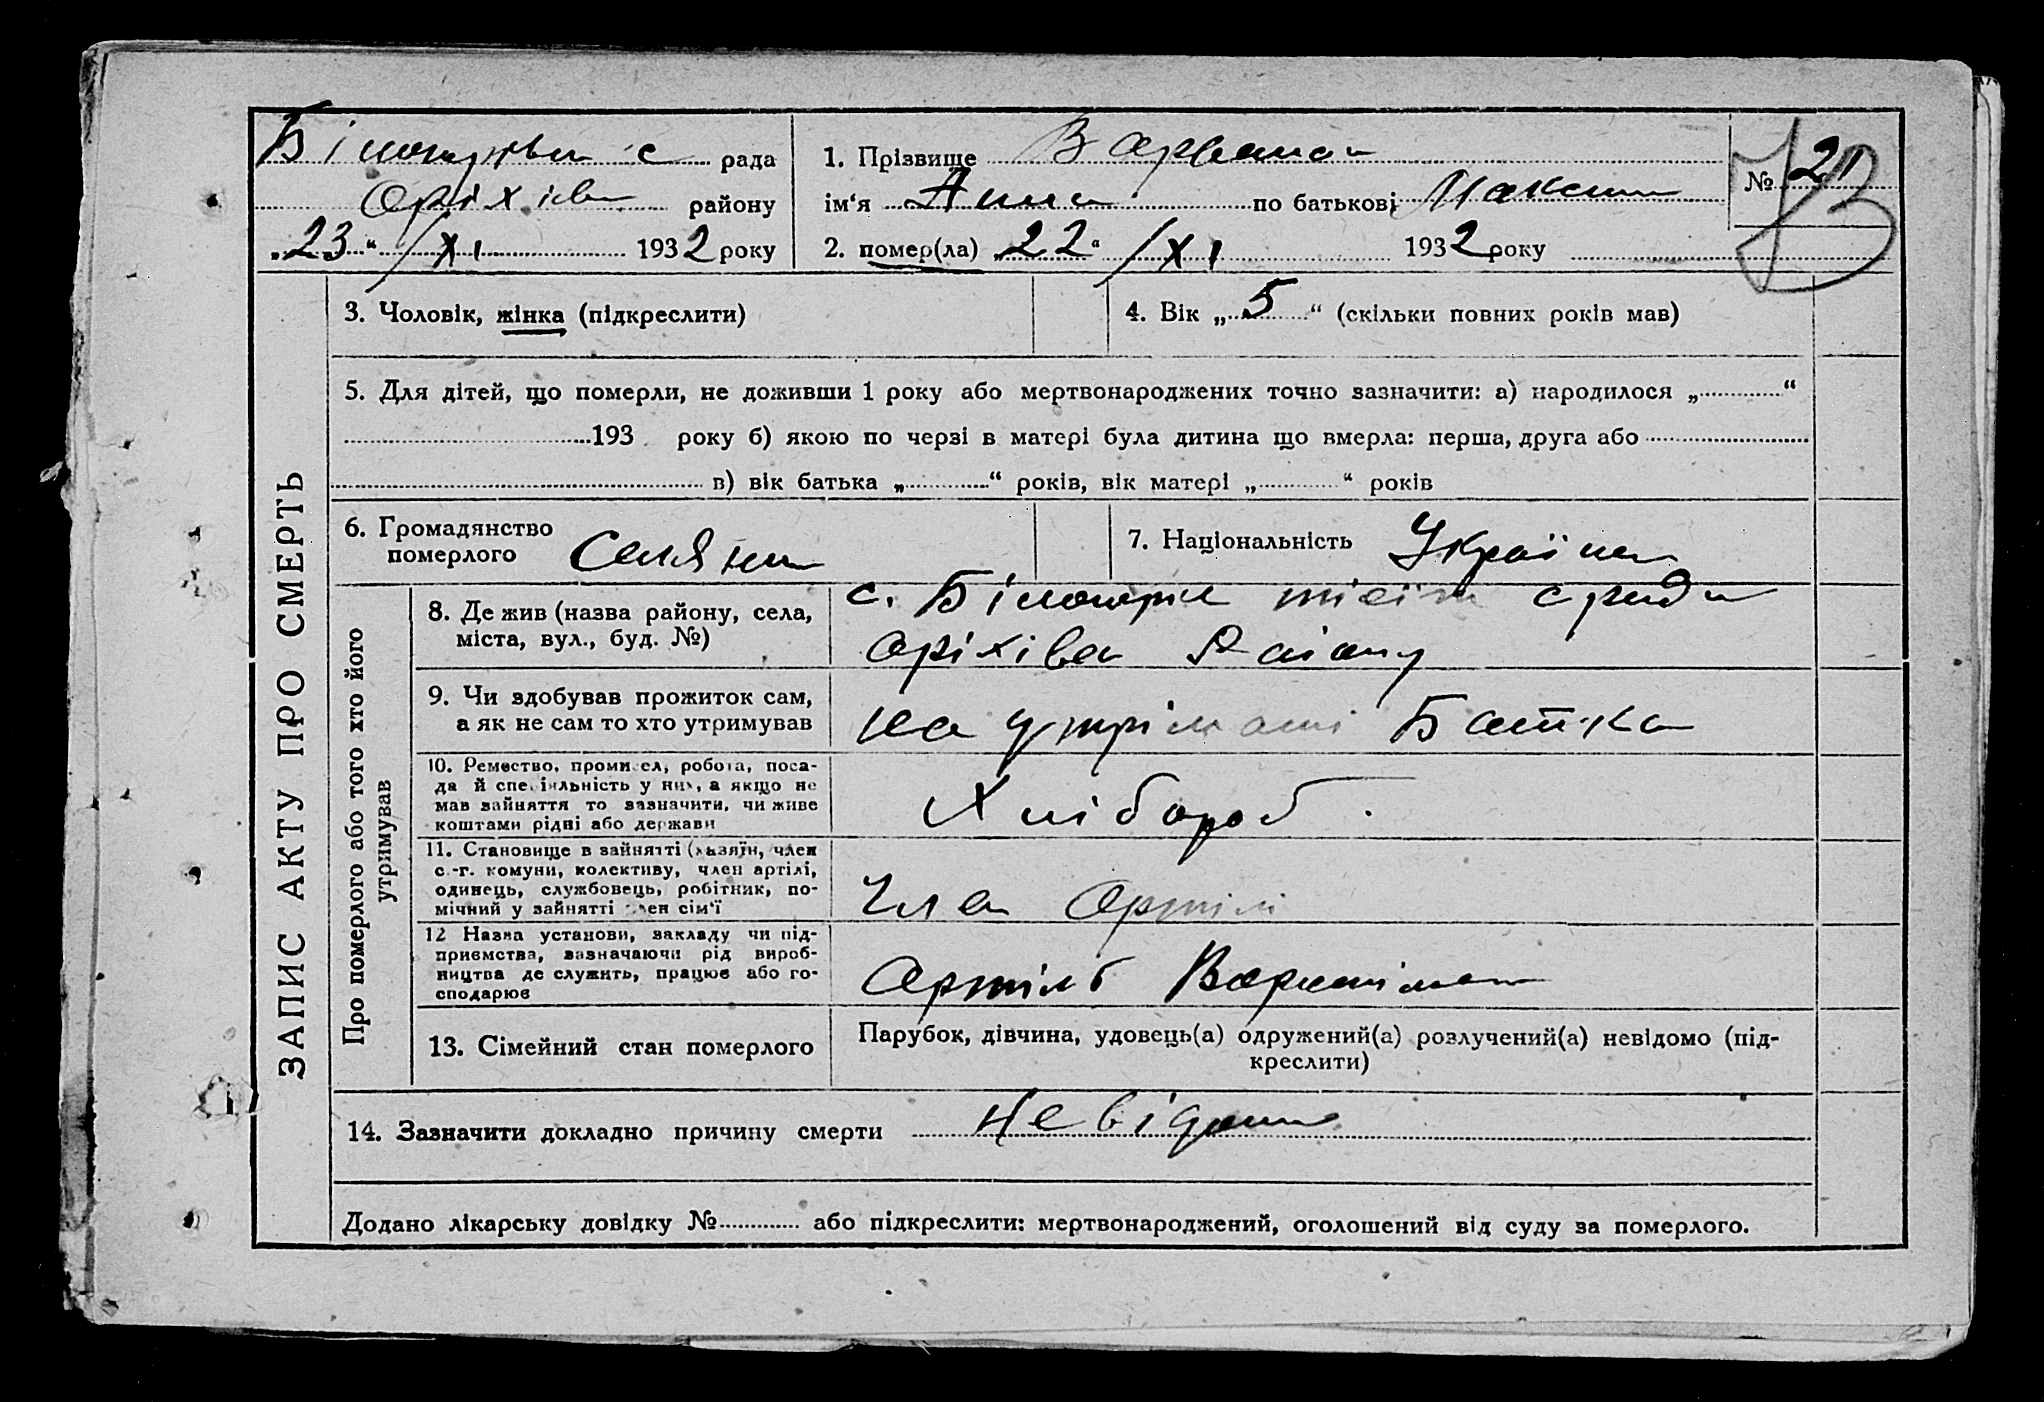 с рада
1. Прізвище
№ 21
Оріхів району
ім'я Анна по батькові Максим
„23“ /XI 1932 року
2. помер(ла) 22“ /XI 1932 року
ЗАПИС АКТУ ПРО СМЕРТЬ
3. Чоловік, жінка (підкреслити)
4. Вік „5“ (скільки повних років мав)
5. Для дітей, що померли, не доживши 1 року або мертвонароджених точно зазначити: а) народилося „ “
193 року б) якою по черзі в матері була дитина що вмерла: перша, друга або
в) вік батька „ “ років, вік матері „ “ років
6. Громадянство
померлого Селян
7. Національність Україн
Про померлого або того хто його
утримував
8. Де жив (назва району, села,
міста, вул., буд. №)
с.
Оріхів
9. Чи здобував прожиток сам,
а як не сам то хто утримував
на Батька
10. Ремество, промисел, робота, поса-
да й спеціяльність у них, а якщо не
мав зайняття то зазначити, чи живе
коштами рідні або держави
Хлібороб
11. Становище в зайнятті (хазяїн, член
с.-г. комуни, колективу, член артілі,
одинець, службовець, робітник, по-
мічний у зайнятті член сім'ї
Член Артілі
12 Назва установи, закладу чи під-
приємства, зазначаючи рід вироб-
ництва де служить, працює або го-
сподарює
Артіль
13. Сімейний стан померлого
Парубок, дівчина, удовець(а) одружений(а) розлучений(а) невідомо (під-
креслити)
14. Зазначити докладно причину смерти Невідома
Додано лікарську довідку № або підкреслити: мертвонароджений, оголошений від суду за померлого.